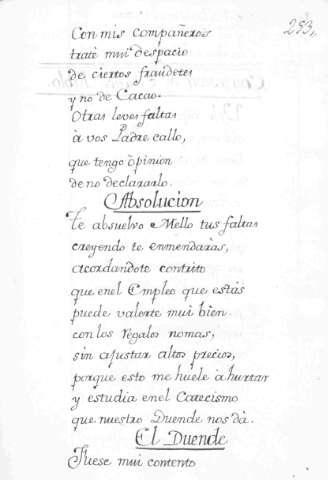 253,,
Con mis compañeros
traté mui despacio
de ciertos fraudetes
y no de Cacao.
Otras leves faltas
à vos Padre callo,
que tengo opinion
de no declararlo.
Absolucion
Te absuelvo Mello tus faltas
creyendo te enmendaràs,
acordandote contrito
que enel Empleo que estàs
puede valerte mui bien
con los regalos nomas,
sin ajustar altos precios,
porque esto me huele à hurtar
y estudia enel Catecismo
que nuestro Duende nos dà.
El Duende
Fuese mui contento